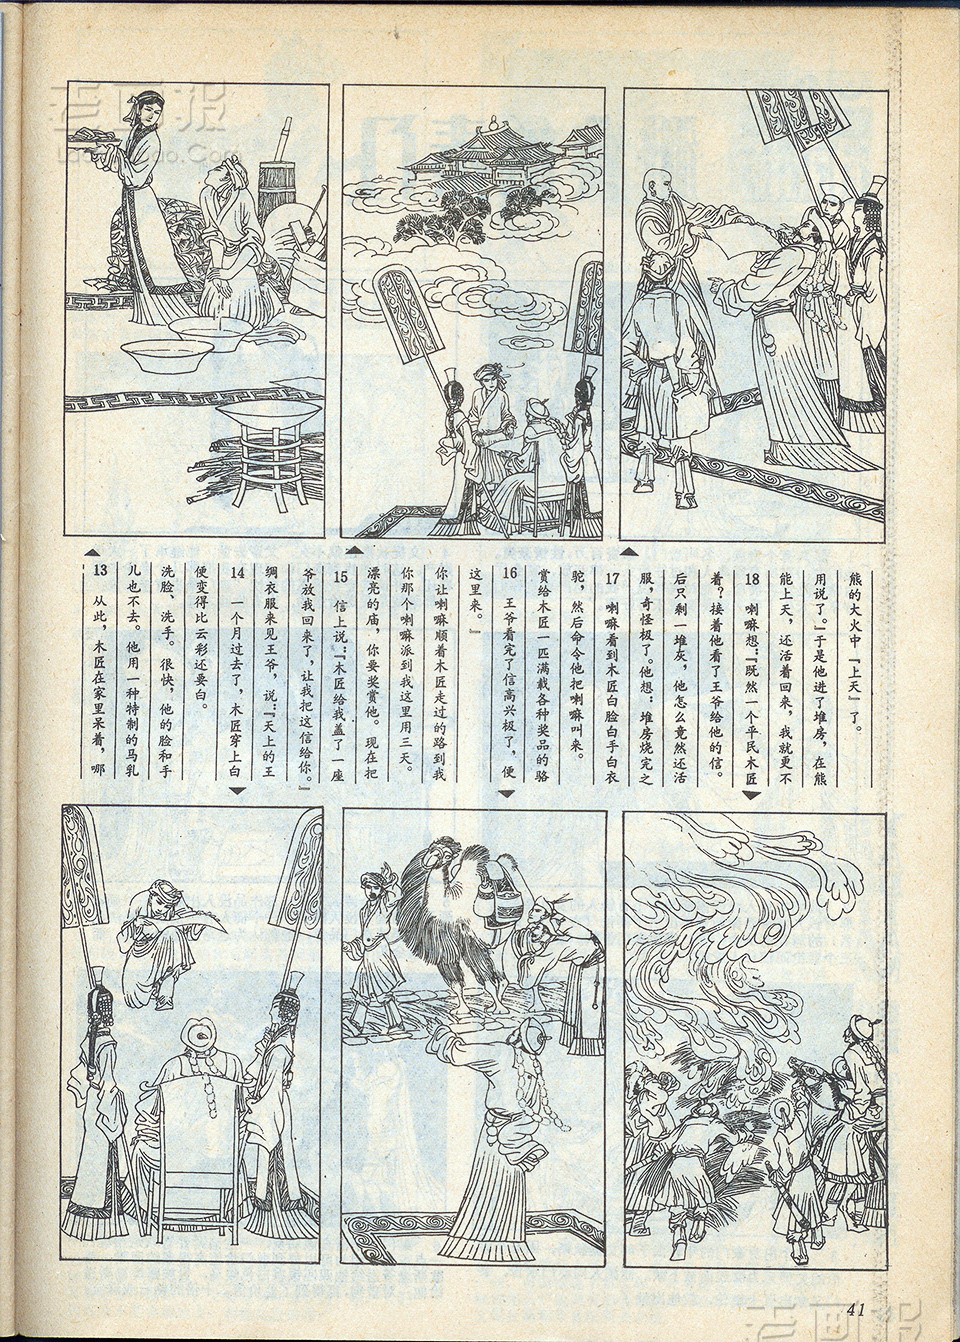 13 从此，木匠在家里呆着，哪
儿也不去。他用一种特制的马乳
洗脸、洗手。很快，他的脸和手
便变得比云彩还要白。
14 一个月过去了，木匠穿上白
绸衣服来见王爷，说：『天上的王
爷放我回来了，让我把这信给你。』
15 信上说：『木匠给我盖了一座
漂亮的庙，你要奖赏他。现在把
你那个喇嘛派到我这里用三天。
你让喇嘛顺着木匠走过的路到我
这里来。』
16 王爷看完了信高兴极了，便
赏给木匠一匹满载各种奖品的骆
驼，然后命令他把喇嘛叫来。
17 喇嘛看到木匠白脸白手白衣
服，奇怪极了。他想：堆房烧完之
后只剩一堆灰，他怎么竟然还活
着？接着他看了王爷给他的信。
18 喇嘛想：『既然一个平民木匠
能上天，还活着回来，我就更不
用说了。』于是他进了堆房，在熊
熊的大火中『上天』了。
41